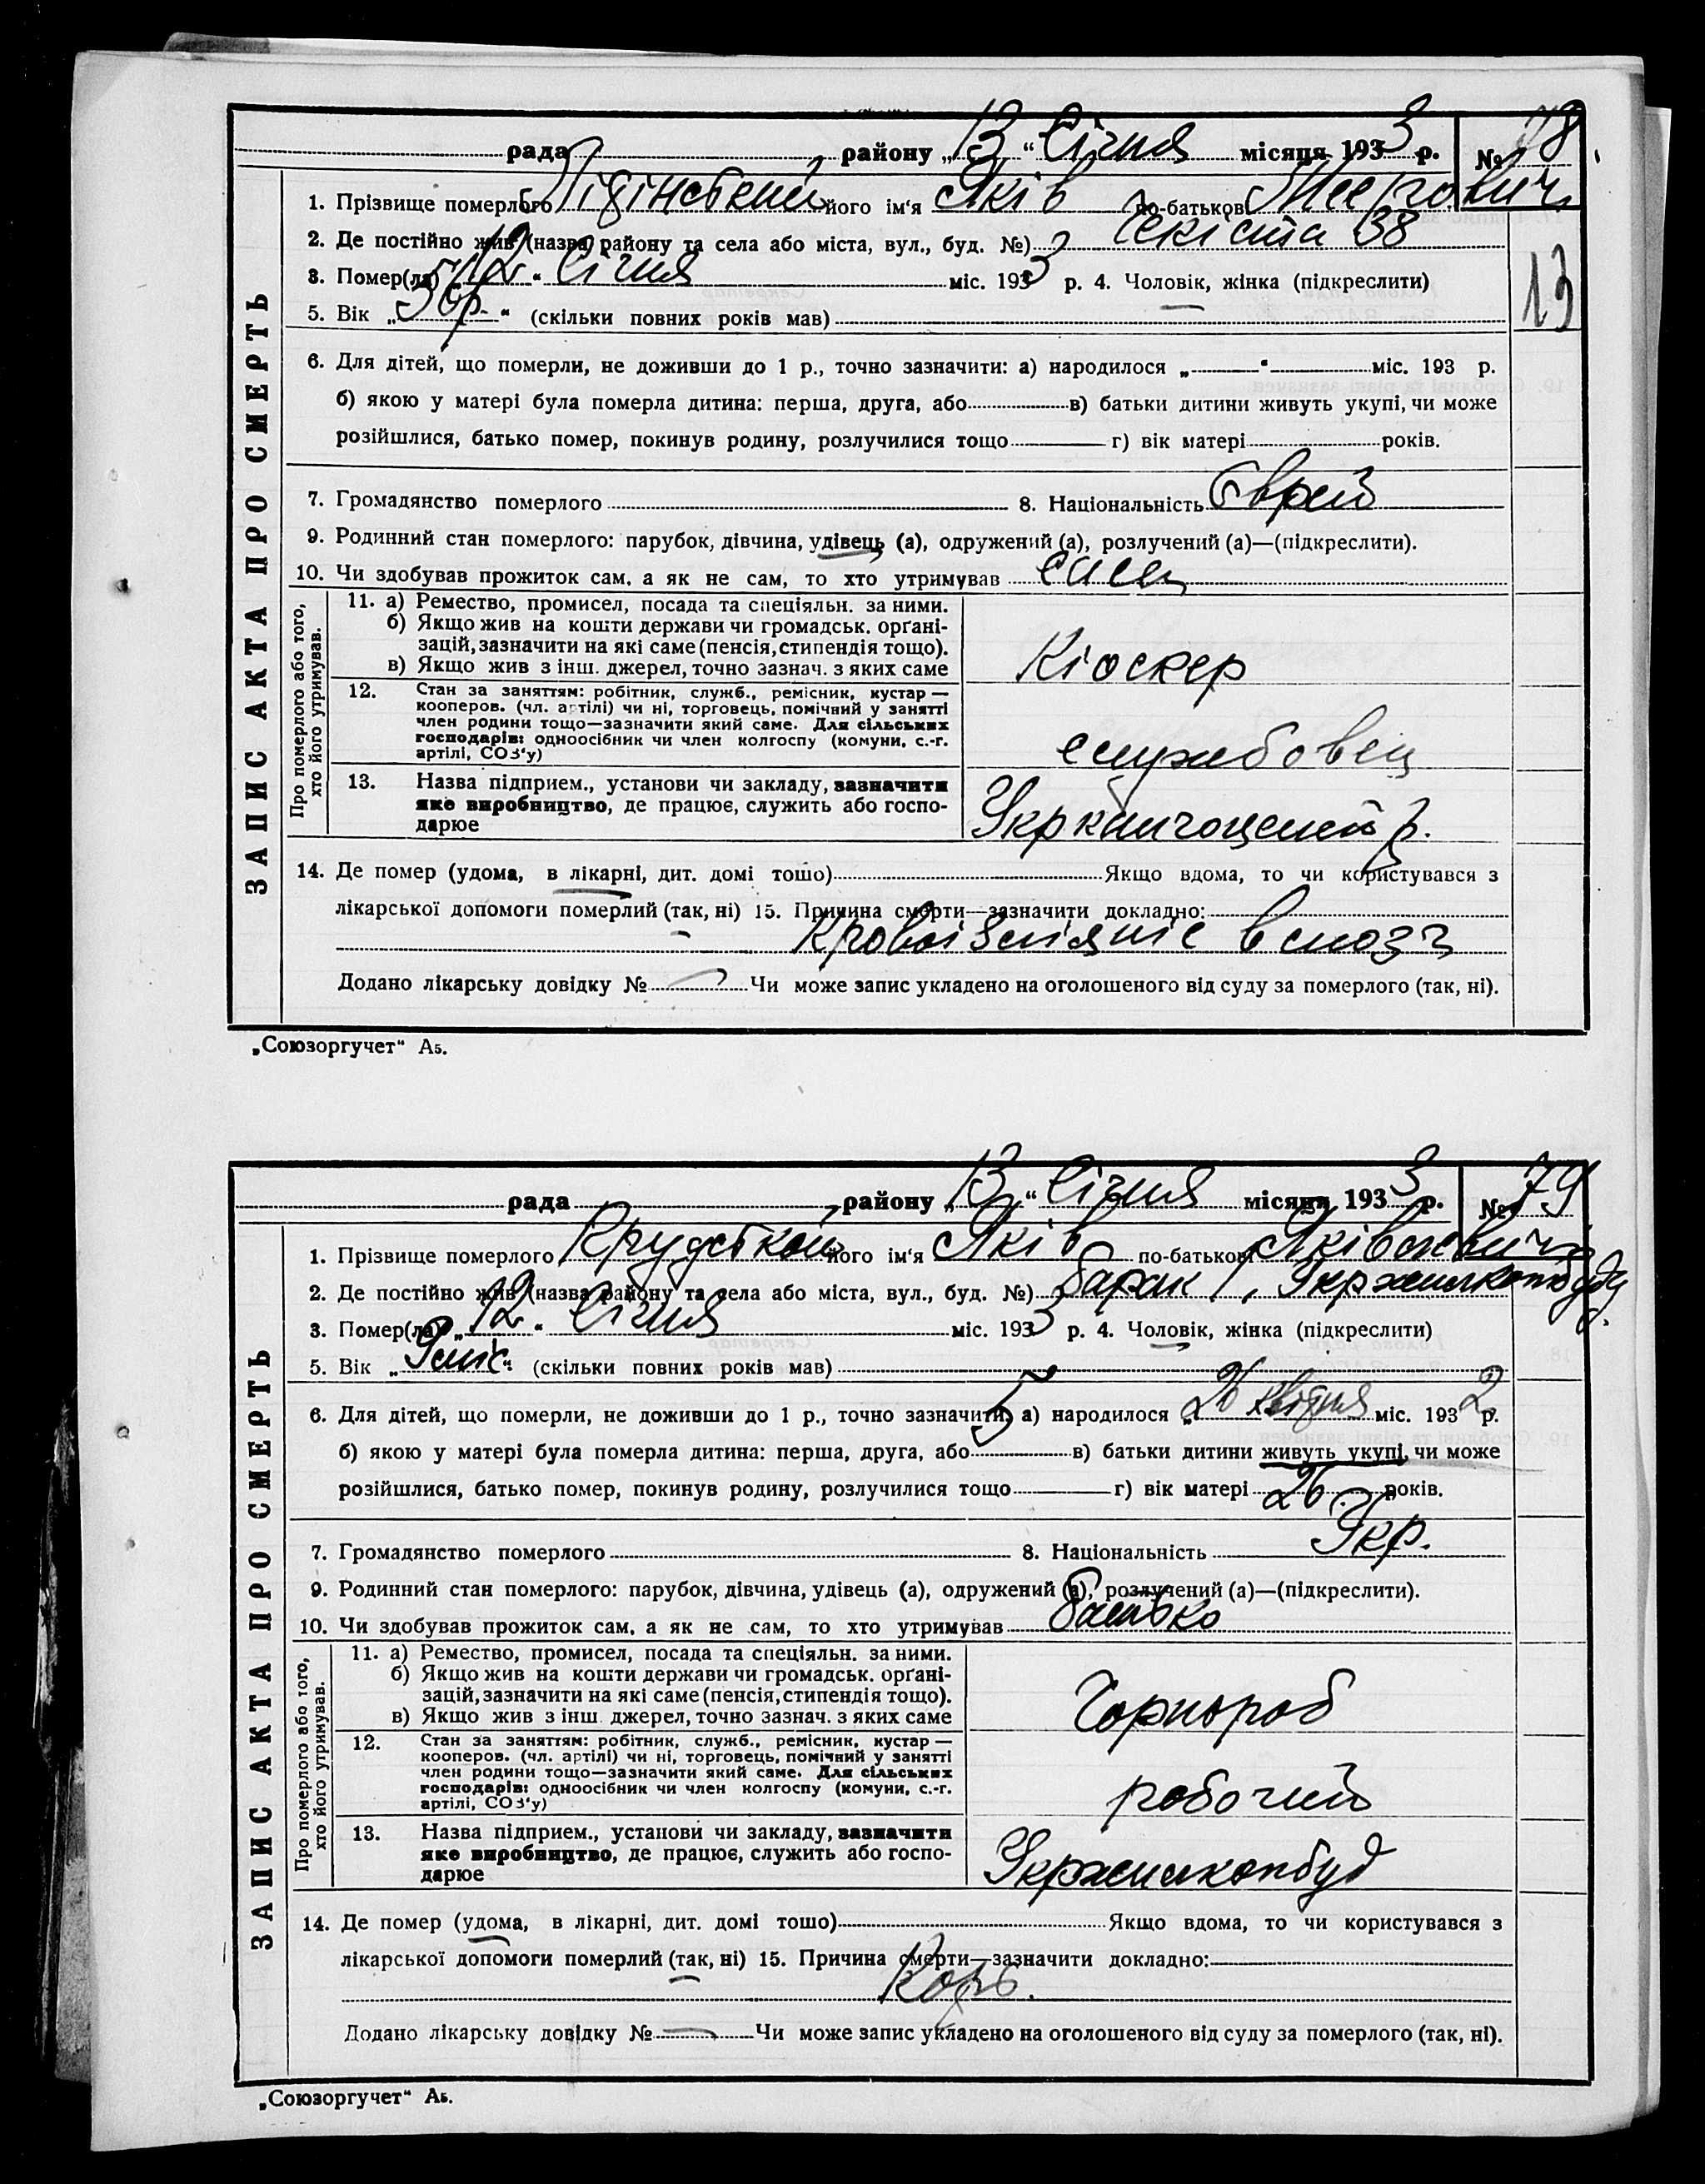 рада районy „13“ Січня місяця 1933 р. № 78
1. Прізвище померлого його ім‘я Яків по-батькові
2. Де постійно жив (назва району та села або міста, вул., буд. №) Чекіста 38
3. Помер(ла) „12“ Січня міс. 1933 р. 4. Чоловік, жінка (підкреслити)
13
5. Вік „ р.“ (скільки повних років мав)
6. Для дітей, що померли, не доживши до 1 р., точно зазначити: а) народилося „ “ міс. 193 р.
б) якою у матері була померла дитина: перша, друга, або в) батьки дитини живуть укупі, чи може
розійшлися, батько помер, покинув родину, розлучилися тощо г) вік матері років.
7. Громадянство померлого 8. Національність Єврей
9. Родинний стан померлого: парубок, дівчина, удівець (а), одружений (а), розлучений (а)—(підкреслити).
10. Чи здобував прожиток сам, а як не сам, то хто утримував сам
Про померлого або того, хто його утримував.
11. а) Ремество, промисел, посада та спеціяльн. за ними.
б) Якщо жив на кошти держави чи громадськ. орґані-
зацій, зазначити на які саме (пенсія, стипендія тощо).
в) Якщо жив з інш. джерел, точно зазнач. з яких саме
Кіоскер
12. Стан за заняттям: робітник, служб., ремісник, кустар —
кооперов. (чл. артілі) чи ні, торговець, помічний у занятті
член родини тощо—зазначити який саме. Для сільських
господарів: одноосібник чи член колгоспу (комуни, с.-г.
артілі, СОЗ‘у)
службовец
13. Назва підприєм., установи чи закладу, зазначити
яке виробництво, де працює, служить або госпо-
дарює
Укркнигоцентр.
14. Де помер (удома, в лікарні, дит. домі тошо) Якщо вдома, то чи користувався з
лікарської допомоги померлий (так, ні) 15. Причина смерти—зазначити докладно:
в мозг
Додано лікарську довідку № Чи може запис укладено на оголошеного від суду за померлого (так, ні).
ЗАПИС АКТА ПРО СМЕРТЬ
„Союзоргучет“ А5.
рада району „13“ Січня місяця 1933 р. № 79
1. Прізвище померлого його ім‘я Яків по-батькові Яківович
2. Де постійно жив (назва району та села або міста, вул., буд. №) барак 1, Укржилкопбуду
3. Помер(ла) „12“ Січня міс. 1933 р. 4. Чоловік, жінка (підкреслити)
5. Вік „9 міс.“ (скільки повних років мав)
6. Для дітей, що померли, не доживши до 1 р., точно зазначити: а) народилося „26 квітня міс. 1932 р.
б) якою у матері була померла дитина: перша, друга, або 5 в) батьки дитини живуть укупі, чи може
розійшлися, батько помер, покинув родину, розлучилися тощо г) вік матері 26 років.
7. Громадянство померлого 8. Національність Укр.
9. Родинний стан померлого: парубок, дівчина, удівець (а), одружений (а), розлучений (а)—(підкреслити).
10. Чи здобував прожиток сам, а як не сам, то хто утримував батько
Про померлого або того, хто його утримував.
11. а) Ремество, промисел, посада та спеціяльн. за ними.
б) Якщо жив на кошти держави чи громадськ. орґані-
зацій, зазначити на які саме (пенсія, стипендія тощо).
в) Якщо жив з інш. джерел, точно зазнач. з яких саме
Чорнороб
12. Стан за заняттям: робітник, служб., ремісник, кустар —
кооперов. (чл. артілі) чи ні, торговець, помічний у занятті
член родини тощо—зазначити який саме. Для сільських
господарів: одноосібник чи член колгоспу (комуни, с.-г.
артілі, СОЗ‘у)
робочий
13. Назва підприєм., установи чи закладу, зазначити
яке виробництво, де працює, служить або госпо-
дарює
Укржилкопбуд
14. Де помер (удома, в лікарні, дит. домі тошо) Якщо вдома, то чи користувався з
лікарської допомоги померлий (так, ні) 15. Причина смерти—зазначити докладно:
Корь.
Додано лікарську довідку № Чи може запис укладено на оголошеного від суду за померлого (так, ні).
ЗАПИС АКТА ПРО СМЕРТЬ
„Союзоргучет“ А5.